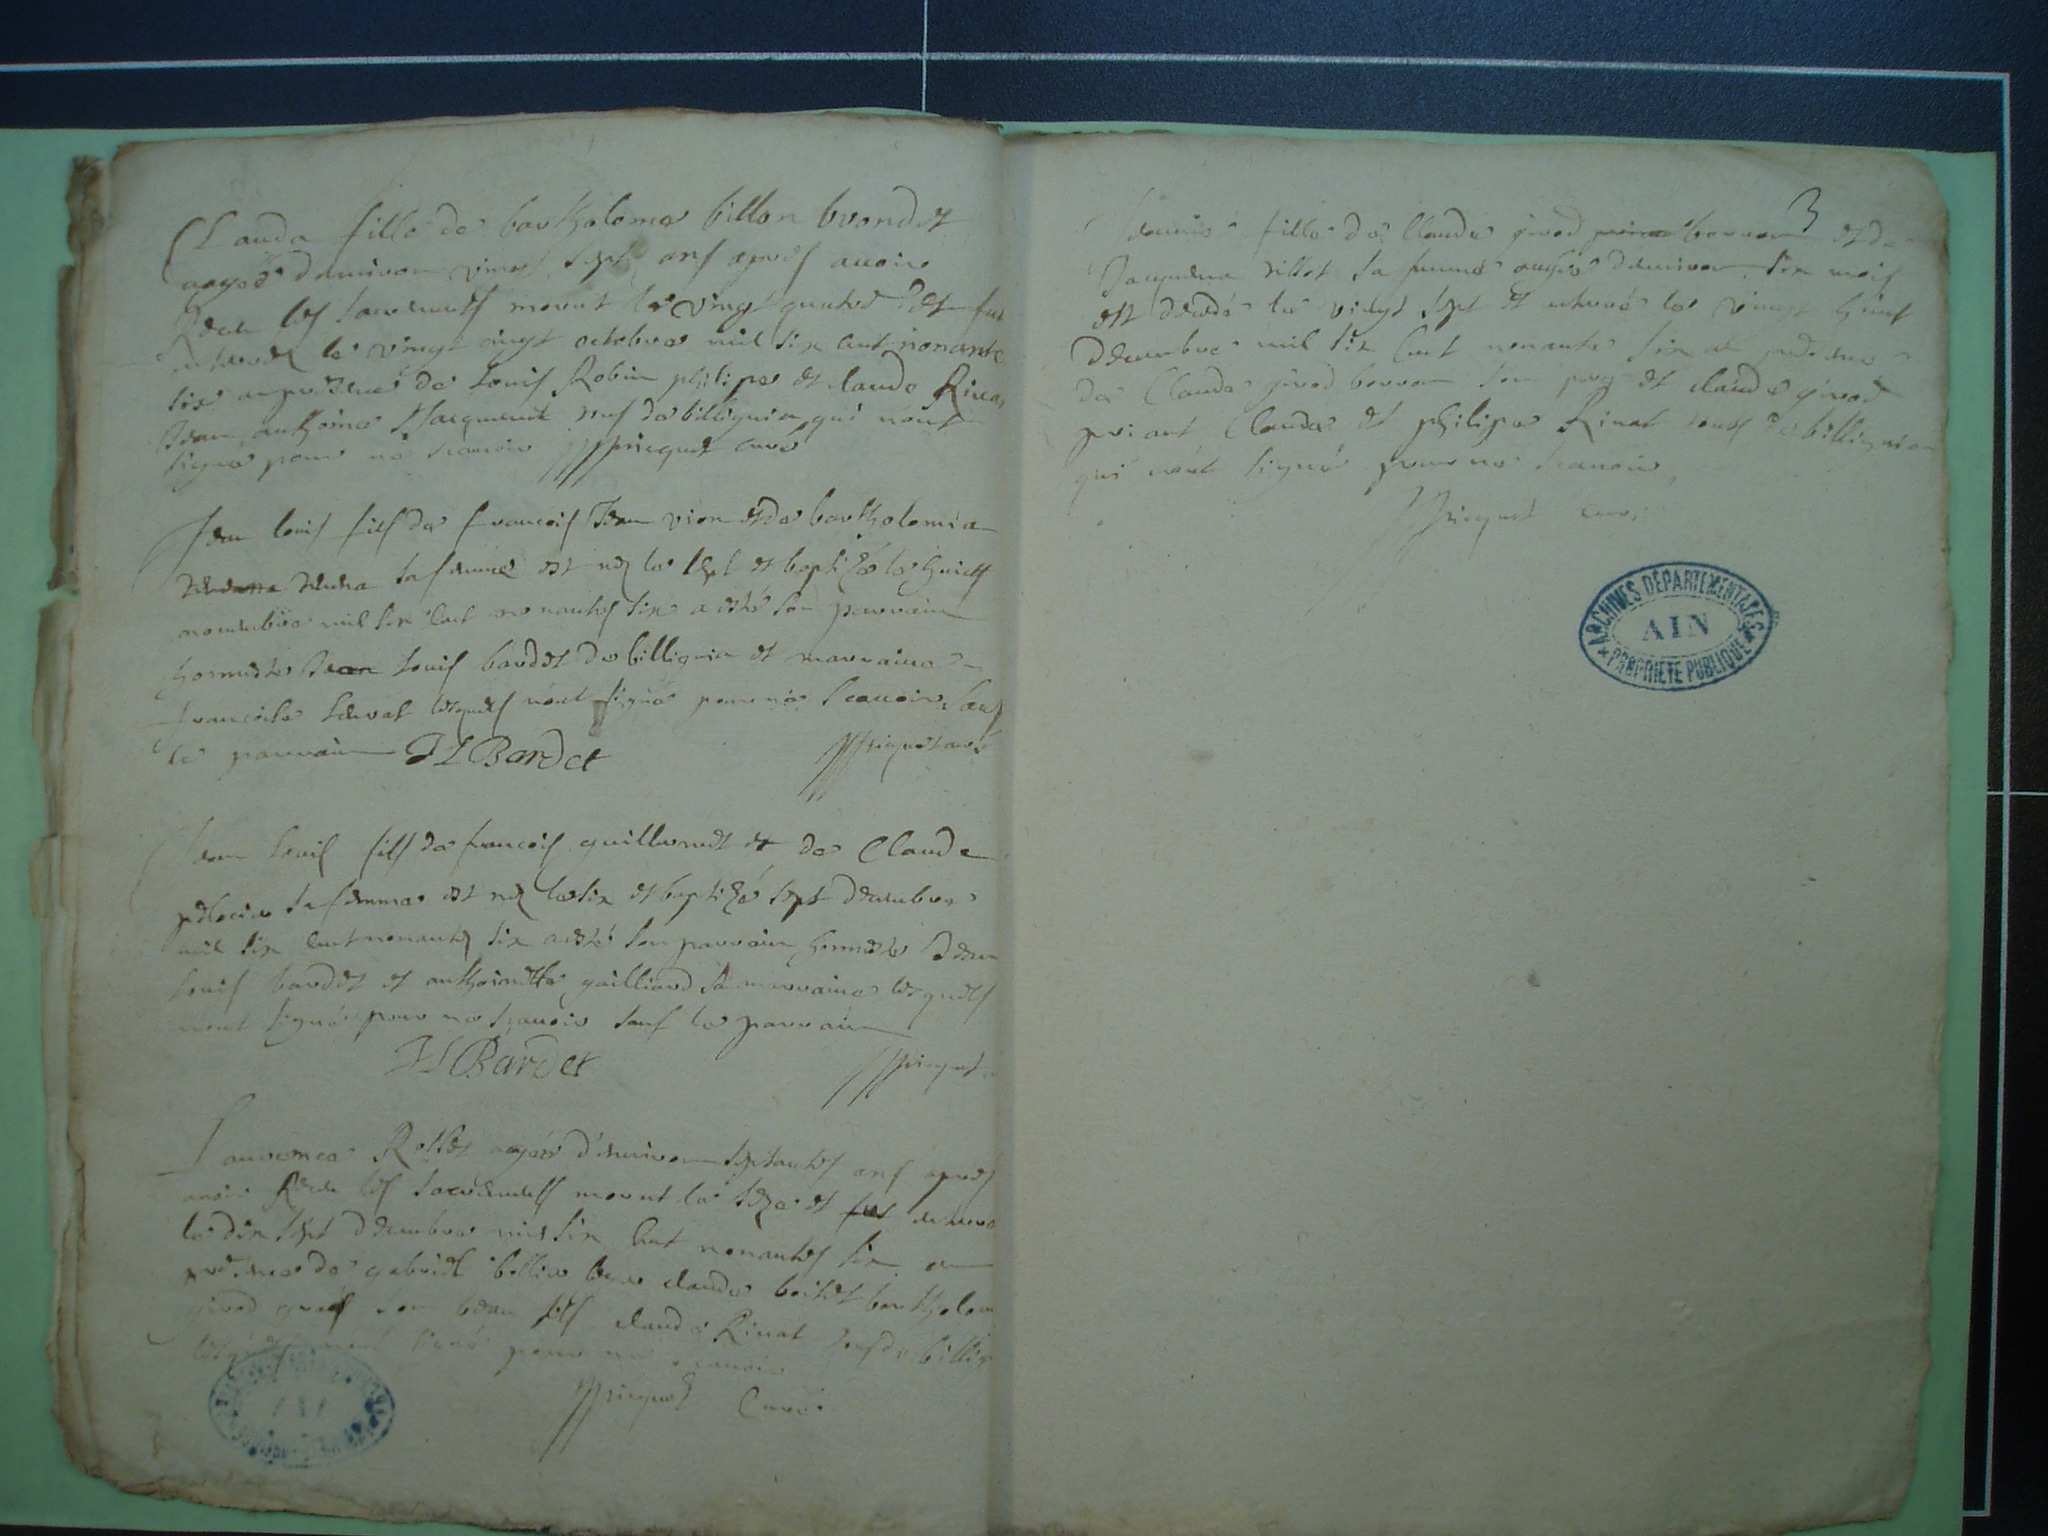 Clauda fille de bartholome billon brondet
aagée d'environ vingt sept ans apres avoir
Receu les sacrements mourut le vingt quatre et fut
enterrée le vingt cinqt octobre mil six cent nonante
six en presence de Louis Robin philipe et claude Rinat
Jean anthoine Jacquemet tous de billignia qui n'ont
signe pour ne scavoir Picquet curé
Jean louis fils de francois Jean vion et de bartholomia
sa femme est nez le sept et baptizé le huict
novembre mil six cent nonantes six a esté son parrain
honneste Jean Louis bardet de billignia et marraine
francoise lesquels n'ont signé pour ne scavoir sauf
le parrain JL Bardet Picquet curé
Jean Louis fils de francois guillermet et de Claude
sa femme est nez le six et baptizé sept decembre
mil six cent nonantes six a esté son parrain honneste Jean
Louis bardet et anthoinette gailliard sa marraine lesquels
n'ont signé pour ne scavoir sauf le parrain
JL Bardet Picquet
Laurence Rosset agée d'environ septantes ans apres
avoir Receu les sacrements mourut le seze et fut enterré
le dix sept decembre mil six cent nonantes six en
presence de gabriel claude boisset bartholome
girod son beau fils claude Rinat tous de billig
lesquels n'ont signé pour ne scavoir
Picquet Curé
3
fille de Claude girod borron et de
sa femme aagée d'environ six mois
est decedé le vingt sept et enterré le vingt huict
decembre mil six cent nonante six en presence
de Claude girod borron son pere et claude girod
Claude et philipe Rinat tous de billignia
qui n'ont signé pour ne scavoir
Picquet curé
ARCHIVES DÉPARTEMENTALES
AIN
PROPRIÉTÉ PUBLIQUE